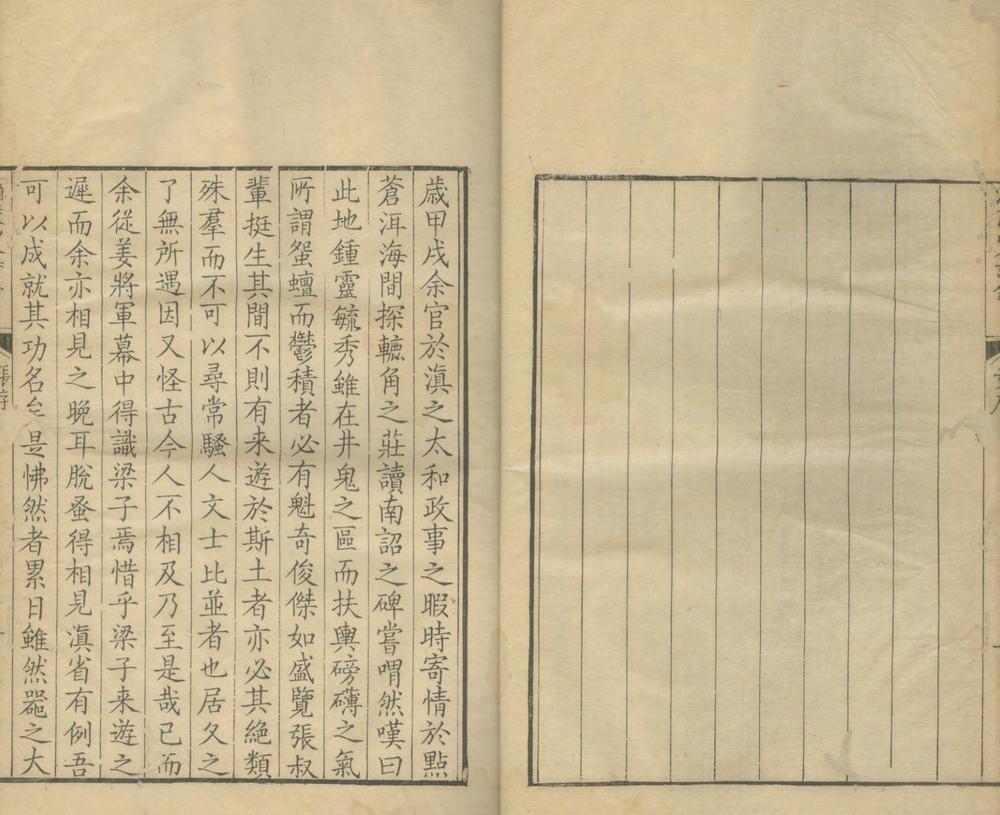 歲甲戌余官於滇之太和政事之暇時寄情於點
蒼洱海間探轆角之莊讀南詔之碑嘗喟然嘆曰
此地鍾靈毓秀雖在井鬼之區而扶輿磅礴之氣
所謂蜿蟺而鬱積者必有魁奇俊傑如盛覽張叔
輩挺生其間不則有来遊於斯土者亦必其絶類
殊羣而不可以尋常騷人文士比並者也居久之
了無所遇因又怪古今人不相及乃至是哉已而
余從姜將軍幕中得識梁子焉惜乎梁子来遊之
遲而余亦相見之晚耳脫蚤得相見滇省有例吾
可以成就其功名矣是怫然者累日雖然器之大
張序